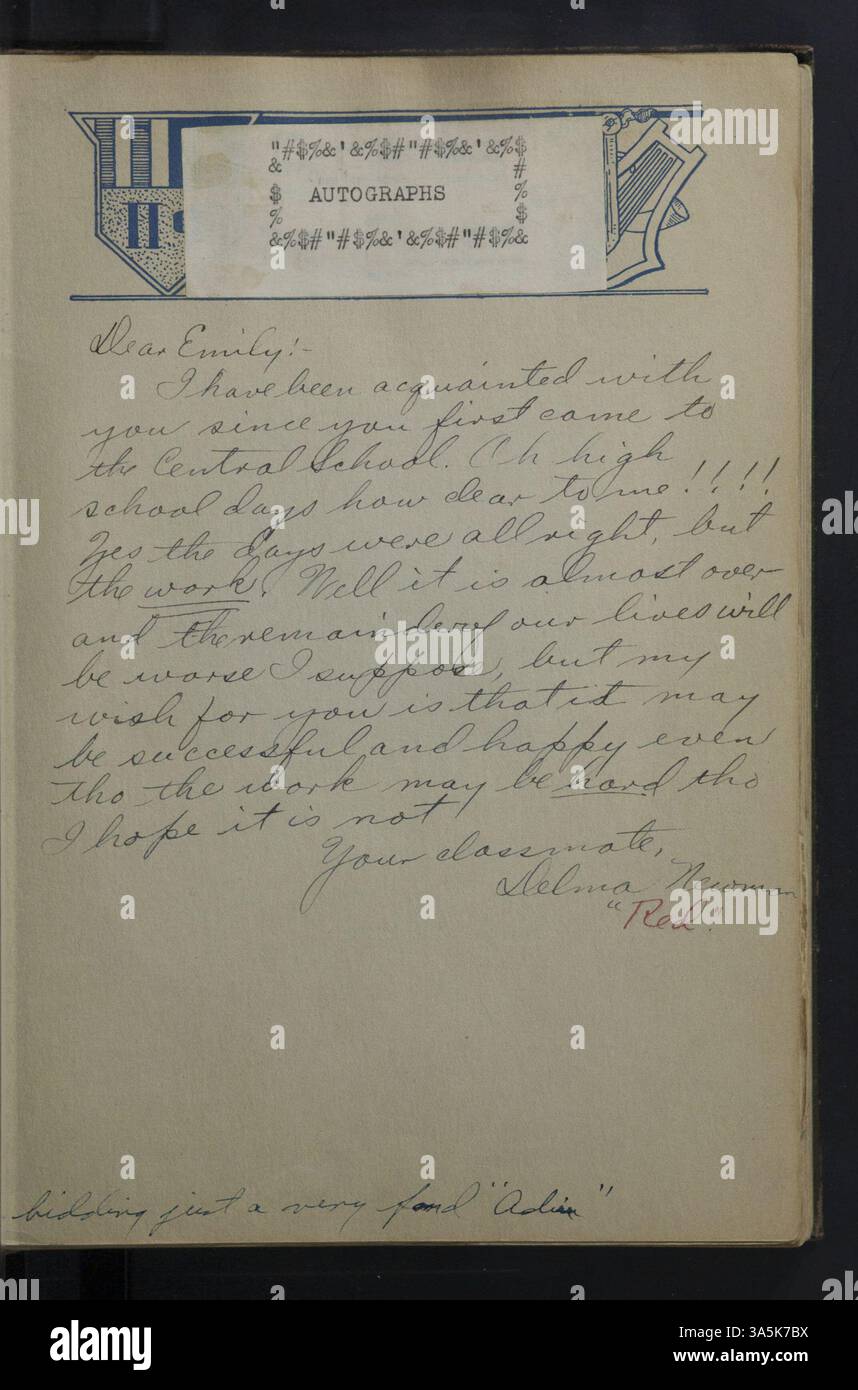 "#$%&'&%$#"#$%&'&%$
& #
$ AUTOGRAPHS %
% $
&%$#"#$%&'&%$#"#$%&
Dear Emily:-
I have been acquainted with
you since you first came to
the Central School. Oh high
school days how dear to me!!!!
Yes the days were all right, but
the work. Well it is almost over
and the remainder of our lives will
be worse I suppose, but my
wish for you is that it may
be successful and happy even
tho the work may be hard tho
I hope it is not
Your classmate,
Delma Newman
"Red".
bidding just a very fond "Adieu"
alamy
alamy
Image ID: 3A5K7BX
www.alamy.com